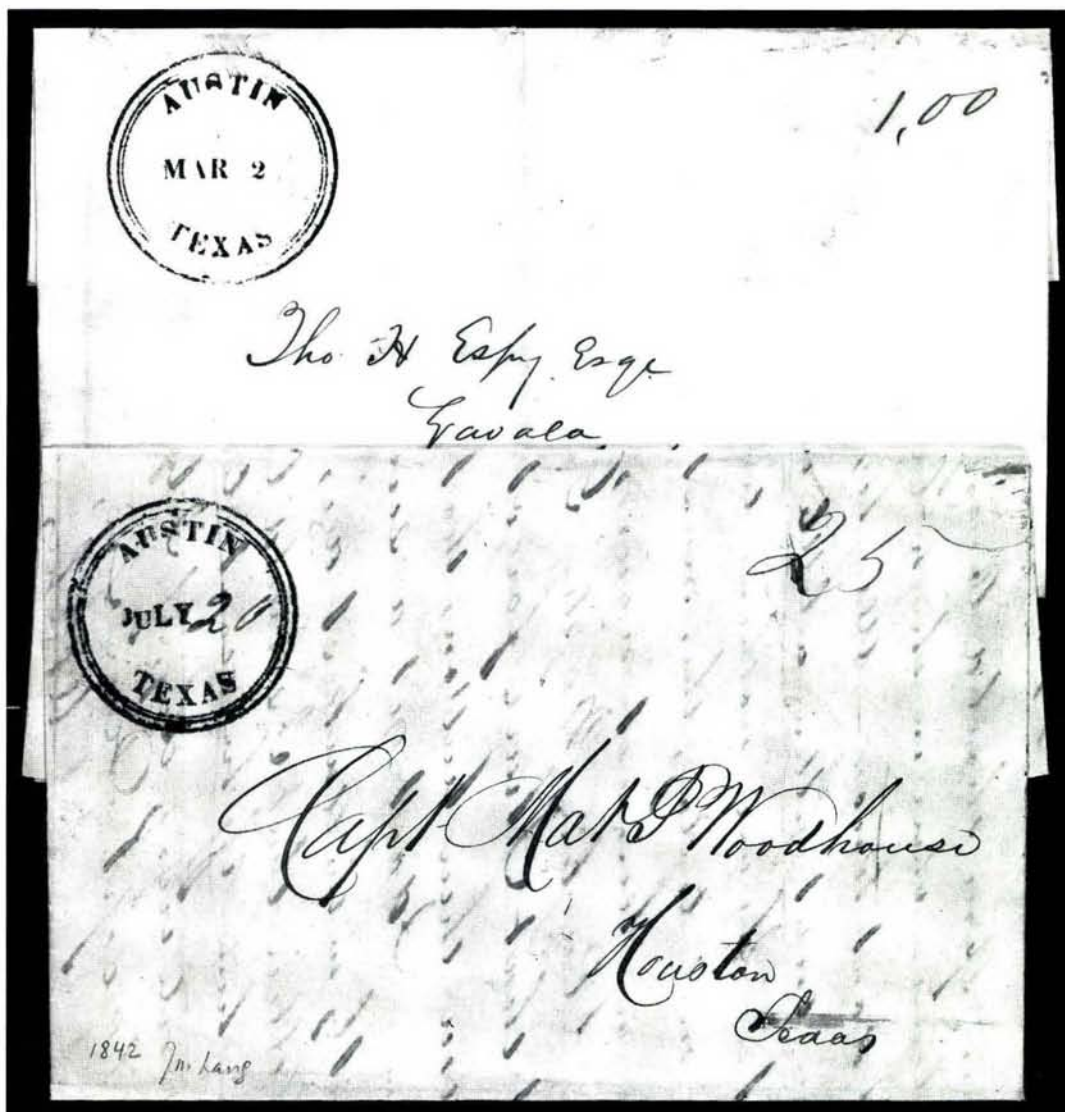 AUSTIN
MAR 2
TEXAS
1,00
Tho. H Espy Esqr
Lavaca
AUSTIN
JULY 20
TEXAS
25
Capt Mat P Woodhouse
Houston
Texas
1842 Jm Lang